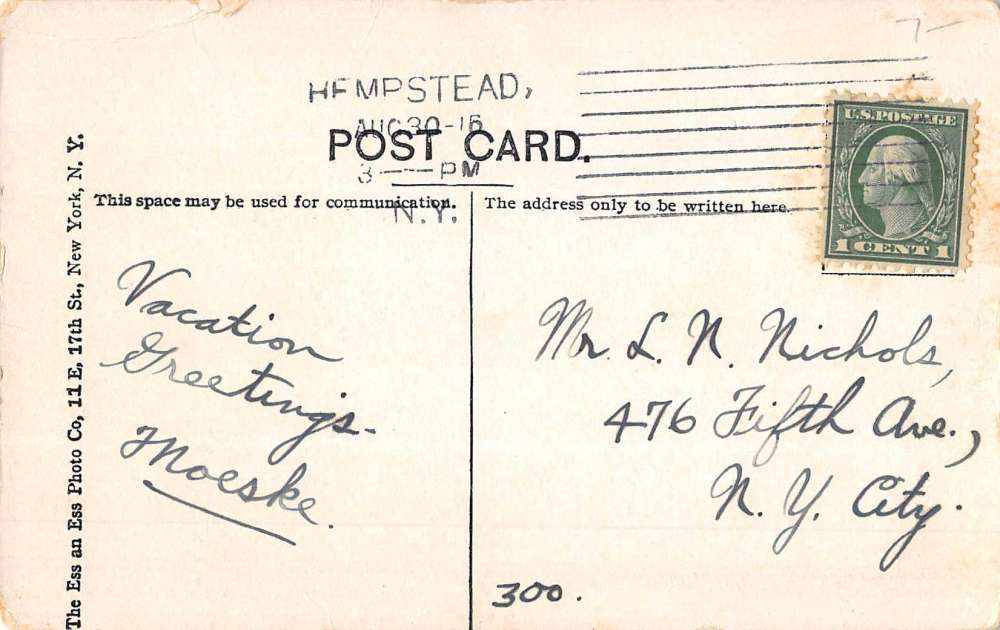 7-
HEMPSTEAD,
AUG 30-15
3 -- PM
N.Y.
POST CARD.
U.S. POSTAGE
1 CENT 1
This space may be used for communication.
The address only to be written here.
The Ess an Ess Photo Co, 11 E, 17th St., New York, N. Y.
Vacation
Greetings-
Moeske.
Mr. L. N. Nichols,
476 Fifth Ave.,
N. Y. City.
300.